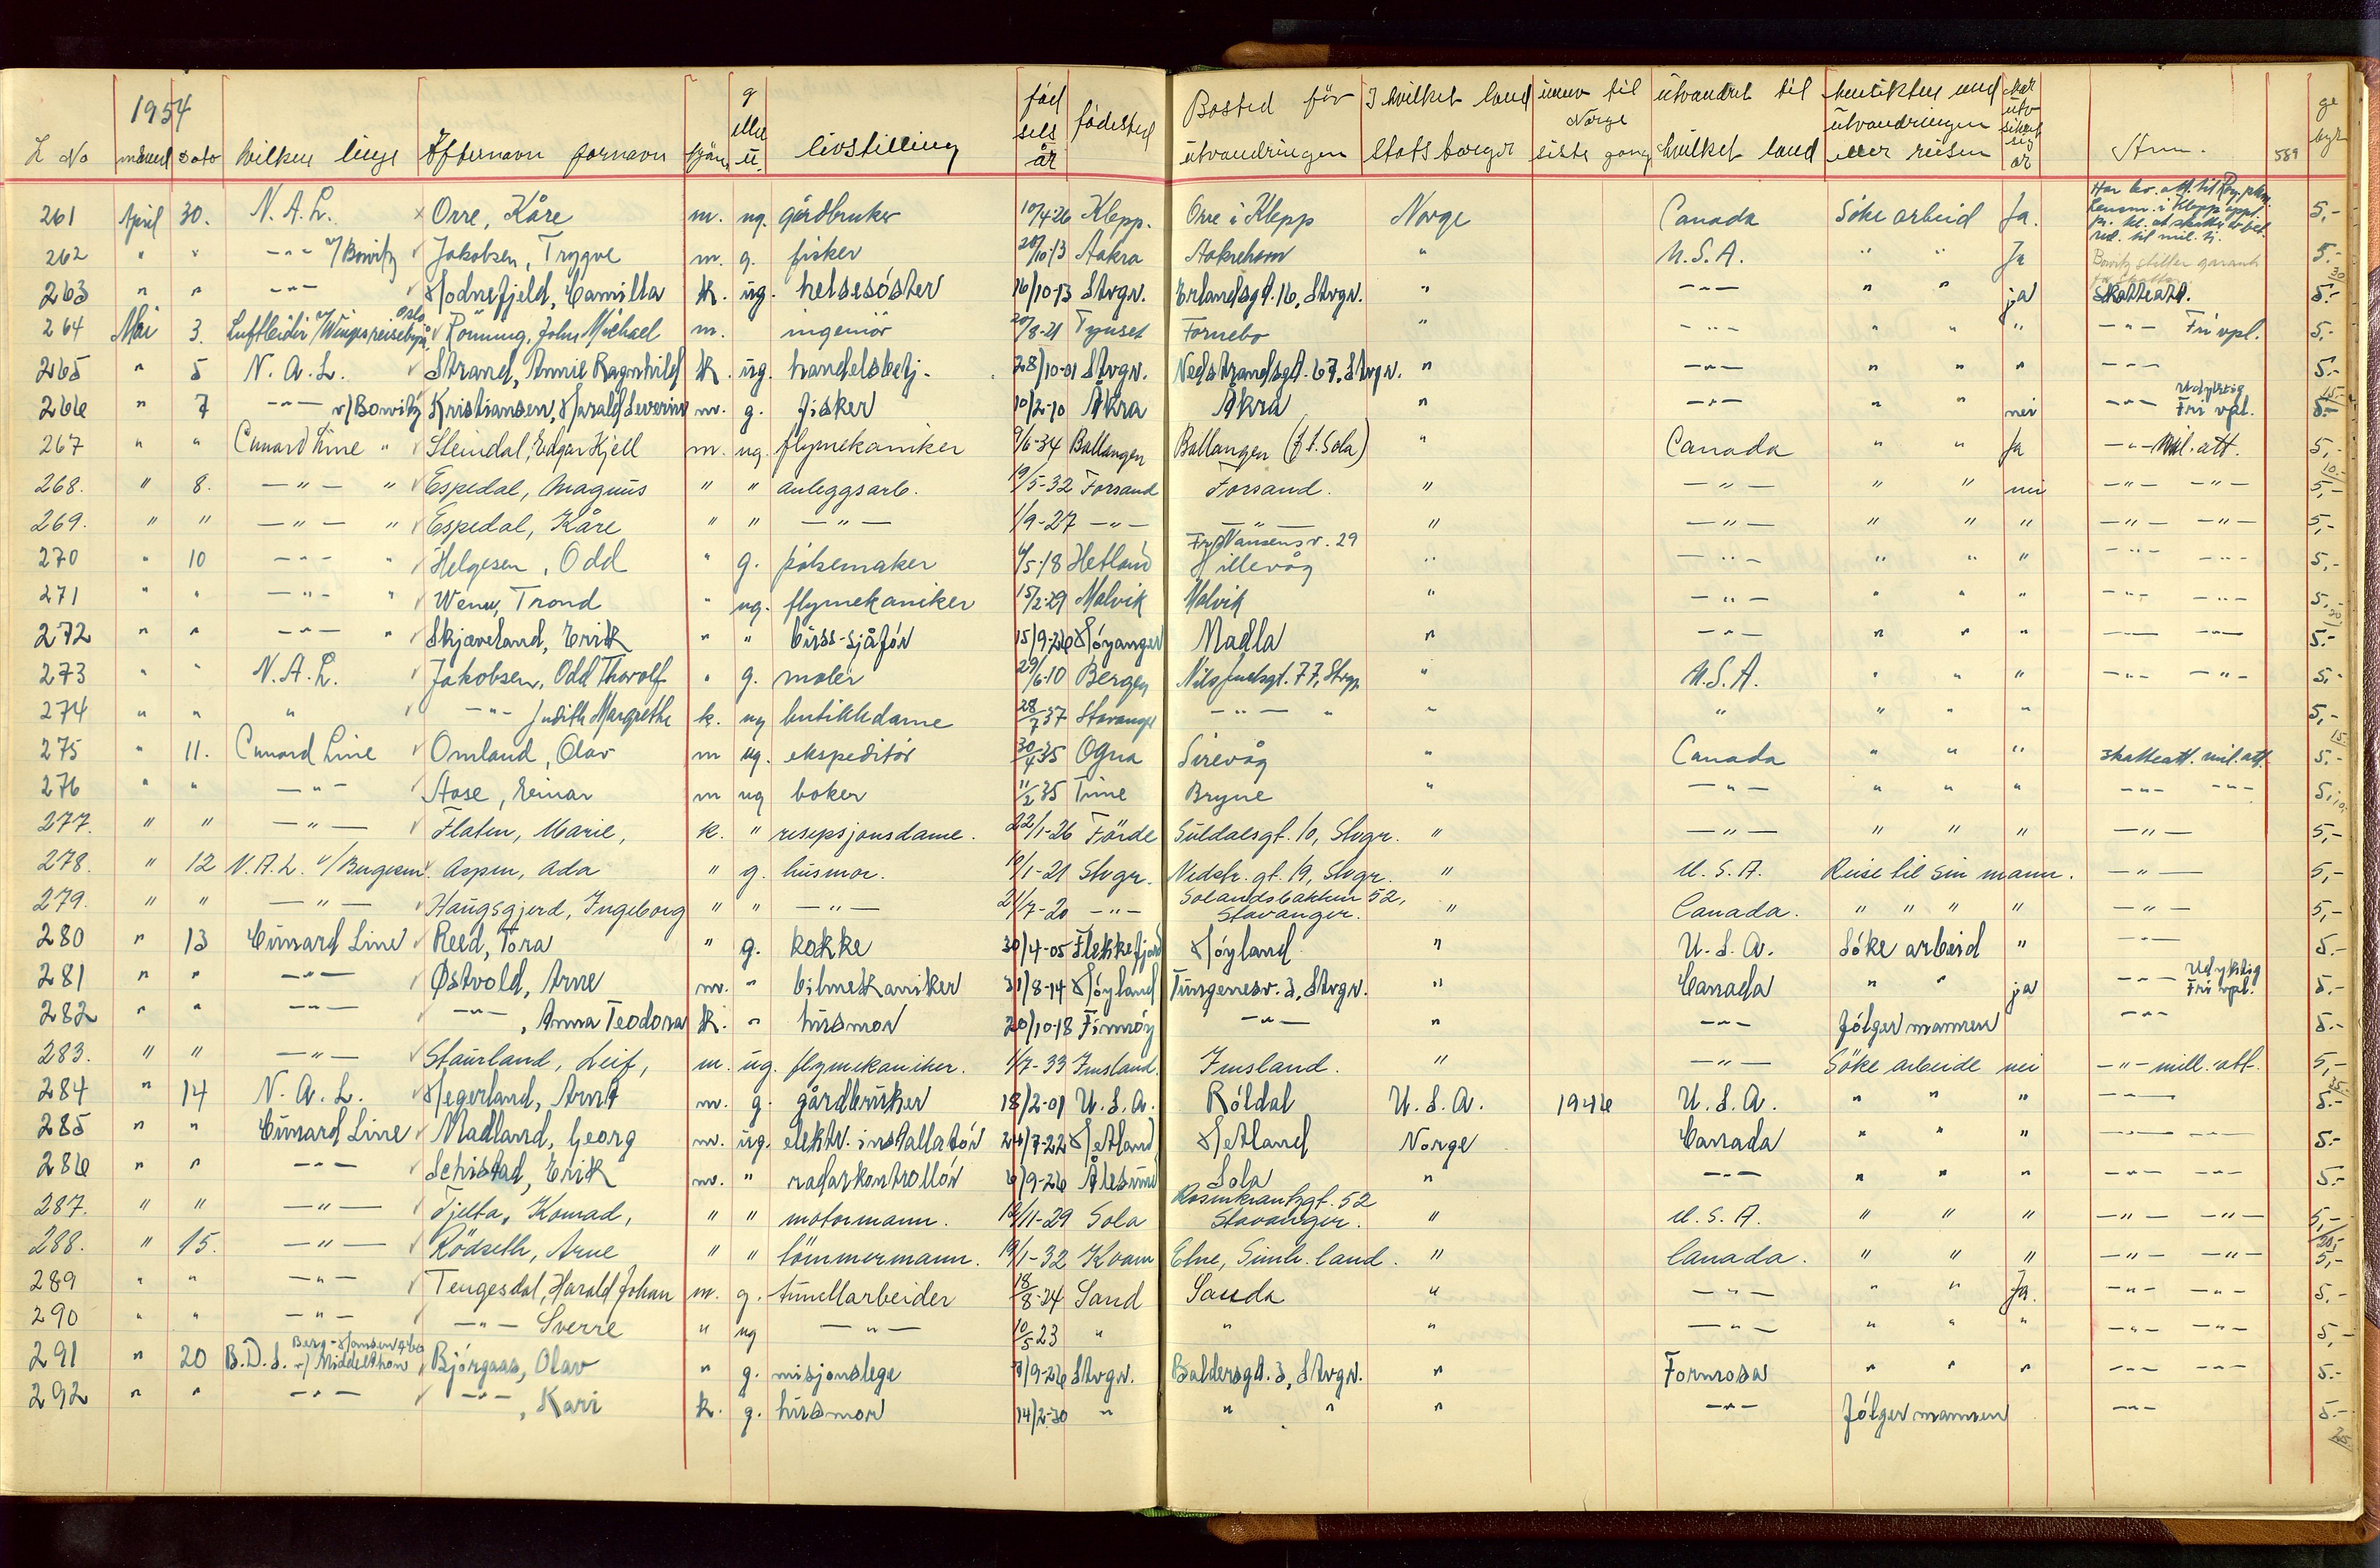 1954
L No måned dato hvilken linje Efternavn fornavn kjön g eller u livstilling födsels år födested Bosted för utvandringen I hvilket land statsborger innv til Norge siste gang utvandret til hvilket land hensikten med utvandringen eller reisen Anm. 589 gebyr
261 April 30. N. A. L. Orre, Kåre m. ug. gårdbruker 10/4-26 Klepp. Orre i Klepp Norge Canada Söke arbeid Ja. 5,-
262 " " -"- v/Bowitz Jakobsen, Trygve m. g. fisker 20/10-13 Aakra Aakrehamn " U.S.A. " " Ja Bowitz stiller garanti for skatter 5.-
263 " " -"- Hodnefjeld, Camilla k. ug. helsesöster 16/10-13 Stvgr. Erlandsgt. 16, Stvgr. " -"- " " ja Skatteatt. 5.-
264 Mai 3. Luftleidir v/Wings reisebyrå Oslo Rönning, John Michael m. ingeniör 20/8-21 Tynset Fornebo " -"- " " " -"- Fri vpl. 5.-
265 " 5 N. A. L. Strand, Annie Ragnhild k. ug. handelsbetj. 28/10-01 Stvgr. Nedstrandsgt. 67, Stvgr. " -"- " " " -"- 5.-
266 " 7 -"- v/Bowitz Kristiansen, Harald Severin m. g. fisker 10/2-10 Åkra Åkra " -"- " " nei -"- Udyktig Fri vpl. 5.-
267 " " Cunard Line " Steindal, Edgar Kjell m. ug. flymekaniker 9/6-34 Ballangen Ballangen (f.t. Sola) " Canada " " Ja -"- Mil. att. 5,-
268. " 8. -"- " Espedal, Magnus " " anleggsarb. 19/5-32 Forsand Forsand. " -"- " " nei -"- -"- 5,-
269. " " -"- " Espedal, Kåre " " -"- 1/9-27 -"- -"- " -"- " " " -"- -"- 5,-
270 " 10 -"- " Helgesen, Odd " g. pölsemaker 6/5-18 Hetland Frdj. Nansensv. 29 Hillevåg " -"- " " " -"- -"- 5,-
271 " " -"- " Wenn, Trond " ug. flymekaniker 15/2-29 Malvik Malvik " -"- " " " -"- -"- 5,-
272 " " -"- " Skjæveland, Erik " " buss-sjåför 15/9-26 Höyanger Madla " -"- " " " -"- -"- 5.-
273 " " N. A. L. Jakobsen, Odd Thorolf " g. maler 29/6-10 Bergen Nils Juelsgt. 77, Stvgr. " U.S.A. " " " -"- -"- 5.-
274 " " " -"- Judith Margrethe k. ug butikkdame 28/7 37 Stavanger -"- " " " " " " 5,-
275 " 11. Cunard Line Omland, Olav m ug. ekspeditör 30/4 35 Ogna Sirevåg " Canada " " " skatteatt. mil. att. 5.-
276 " " -"- Aase, Einar m ug baker 11/2 35 Time Bryne " -"- " " " -"- -"- 5,-
277. " " -"- Flaten, Marie, k. " resepsjonsdame. 22/1-26 Förde Suldalsgt. 10, Stvgr. " -"- " " " -"- 5,-
278. " 12 N.A.L. v/Bugesen Aspen, Ada " g. husmor. 10/1-21 Stvgr. Nedstr. gt. 19, Stvgr. " U.S.A. Reise til sin mann. -"- 5,-
279. " " -"- Haugsgjerd, Ingeborg " " -"- 21/7-20 -"- Solandsbakken 52, Stavanger. " Canada. " " " " -"- 5,-
280 " 13 Cunard Line Reed, Tora " g. kokke 30/4-05 Flekkefjord Höyland " U.S.A. Söke arbeid " -"- 5.-
281 " " -"- Østvold, Arne m. " bilmekaniker 31/8-14 Höyland Tungenesv. 3, Stvgr. " Canada " " ja -"- Udyktig Fri vpl. 5.-
282 " " -"- -"-, Anna Teodora k. " husmor 20/10-18 Finnöy -"- " -"- fölger mannen -"- 5.-
283. " " -"- Staurland, Leif, m. ug. flymekaniker. 1/7-33 Imsland. Imsland. " -"- Söke arbeide nei -"- mill. att. 5,-
284 " 14 N. A. L. Hegerland, Arnt m. g. gårdbruker 18/2-01 U.S.A. Röldal U.S.A. 1946 U.S.A. " " " -"- 5.-
285 " " Cunard Line Madland, Georg m. ug. elektr. installatör 26/7-22 Hetland Hetland Norge Canada " " " -"- -"- 5.-
286 " " -"- Schistad, Erik m. " radarkontrollör 6/9-26 Ålesund Sola " -"- " " " -"- -"- 5.-
287. " " -"- Tjelta, Konrad, " " motormann. 12/11-29 Sola Rosenkrantzgt. 52 Stavanger. " U.S.A. " " " -"- -"- 5,-
288. " 15. -"- Rödseth, Arne " " tömmermann. 19/1-32 Kvam Elne, Sunh. land. " Canada. " " " -"- -"- 5,-
289 " " -"- Tengesdal, Harald Johan m. g. tunellarbeider 18/8-24 Sand Sauda " -"- " " Ja. -"- -"- 5.-
290 " " -"- -"- Sverre " ug -"- 10/5 23 " " " -"- " " " -"- -"- 5,-
291 " 20 B.D.S. Berg-Hansen v/Middelthon Bjørgaas, Olav " g. misjonslege 11/9-26 Stvgr. Baldersgt. 3, Stvgr. " Formosa " " " -"- -"- 5.-
292 " " -"- -"-, Kari k. g. husmor 14/2-30 " " " " -"- fölger mannen -"- 5.-